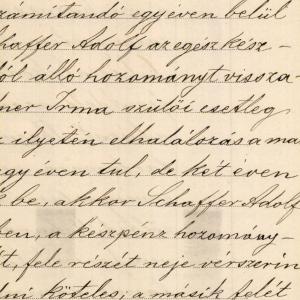 számítandó egy éven belül
haffer Adolf az egész kész-
ból álló hozományt vissza-
ner Irma szülői esetleg
ilyetén elhalálozás a ma
egy éven tul, de két éven
be, akkor Schaffer Adolf
ben, a készpénz hozomány-
t, fele részét neje vérszerin
ni köteles; a másik felét